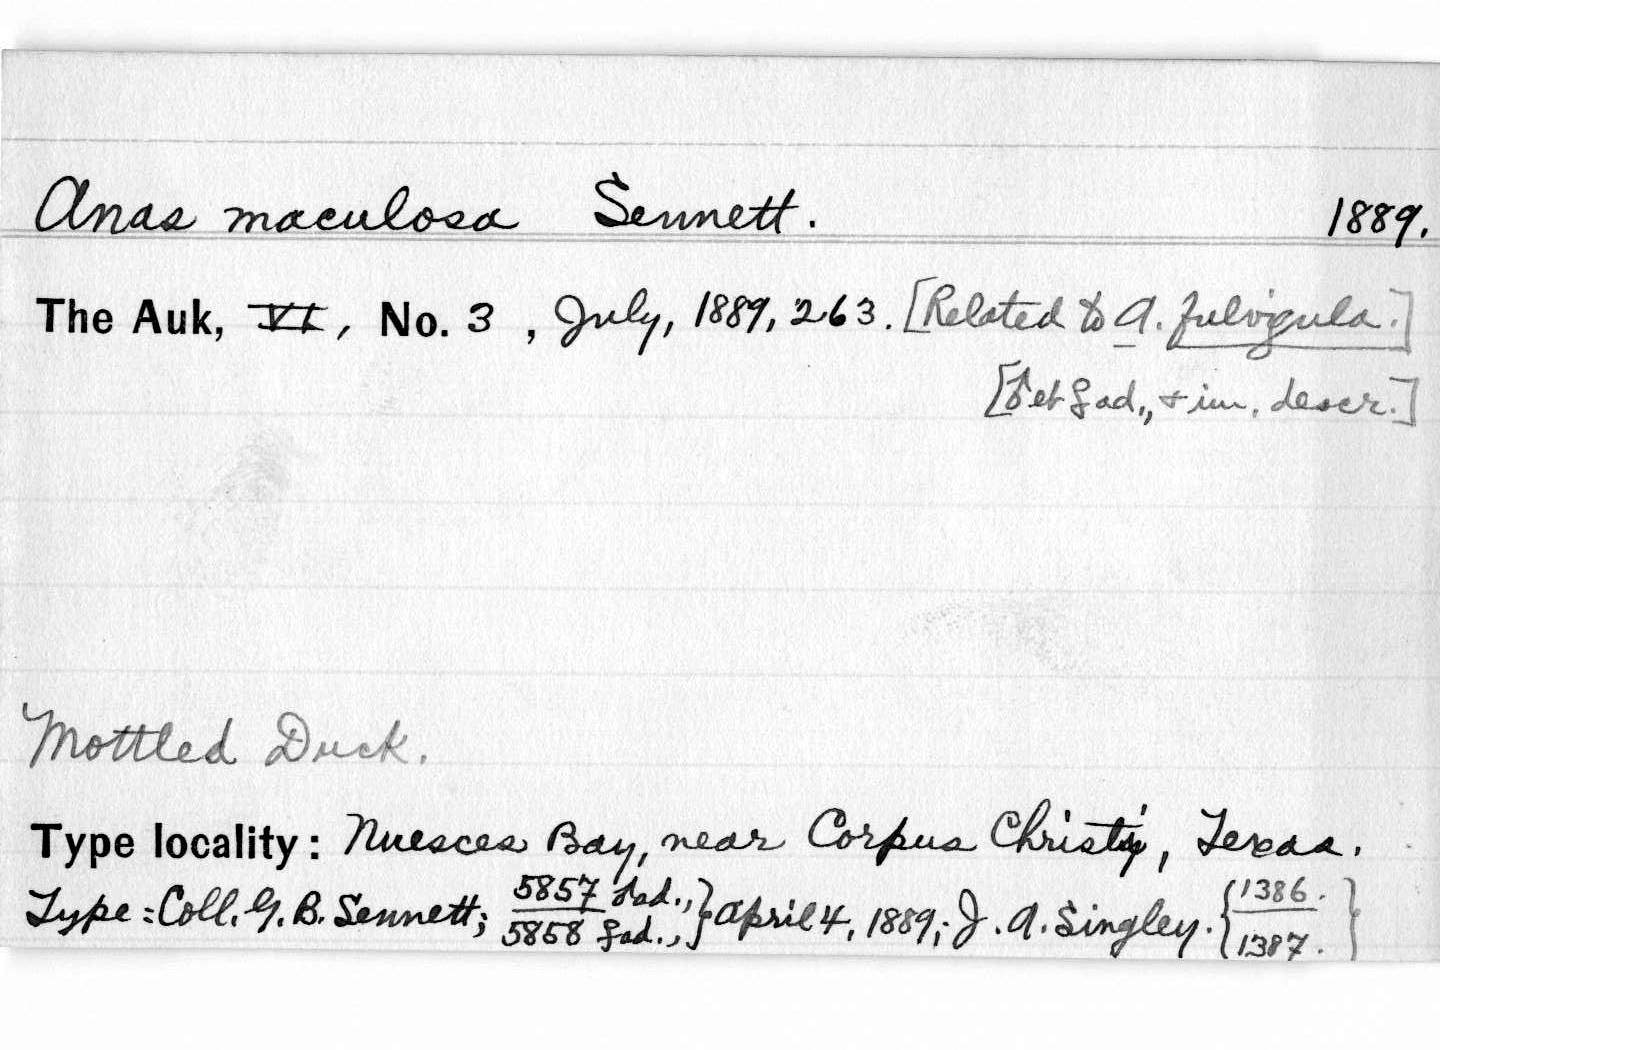 Anas maculosa Sennett. 1889.
The Auk, VI, No. 3, July, 1889, 263. [Related to A. fulvigula.]
[♂ et ♀ ad., + im. descr.]
Mottled Duck.
Type locality: Nuesces Bay, near Corpus Christi, Texas.
Type: Coll. G. B. Sennett; 5857 ♂ ad., / 5858 ♀ ad., } April 4, 1889; J. A. Singley. { 1386. / 1387. }